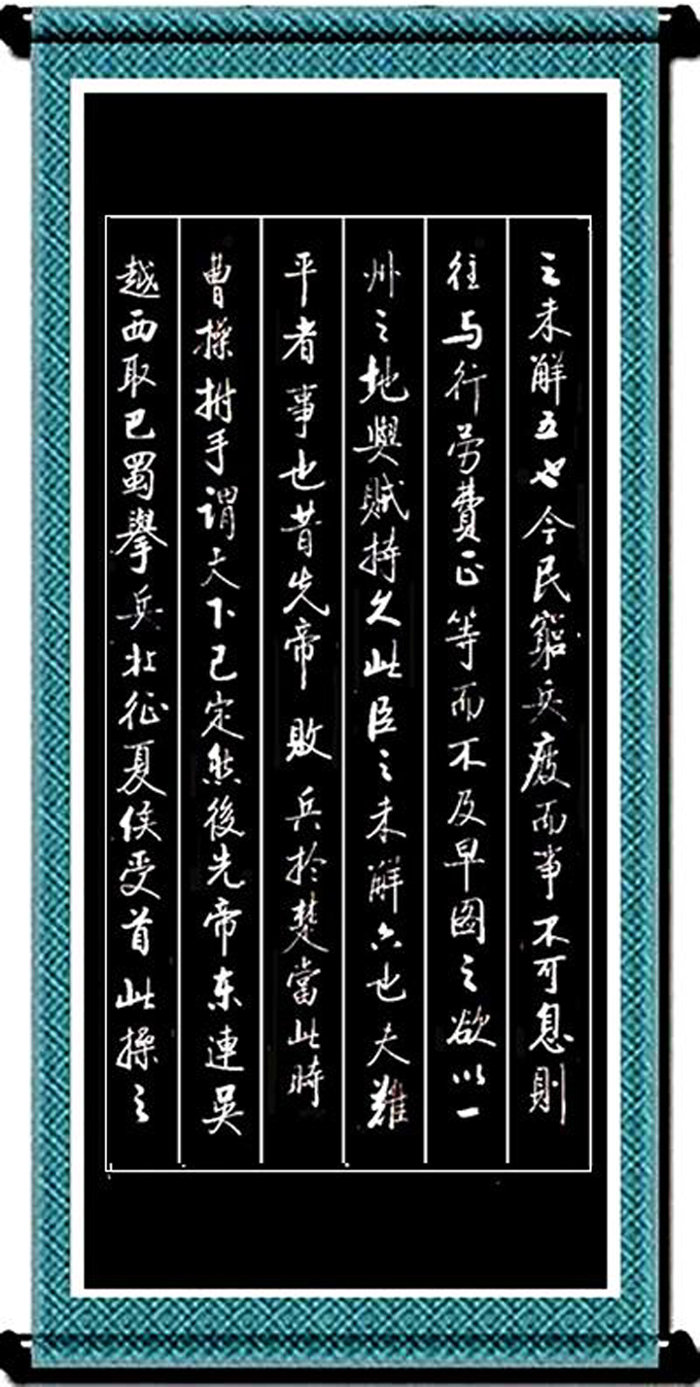 之未解五也今民窮兵疲而事不可息則
住与行劳費正等而不及早图之欲以一
州之地與賊持久此臣之未解六也夫難
平者事也昔先帝敗兵於楚當此時
曹操拊手謂天下已定然後先帝东連吴
越西取巴蜀舉兵北征夏侯受首此操之